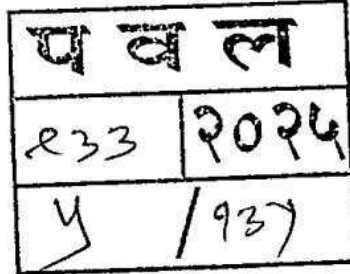 प व ल
९३३ २०२५
५ / १३५